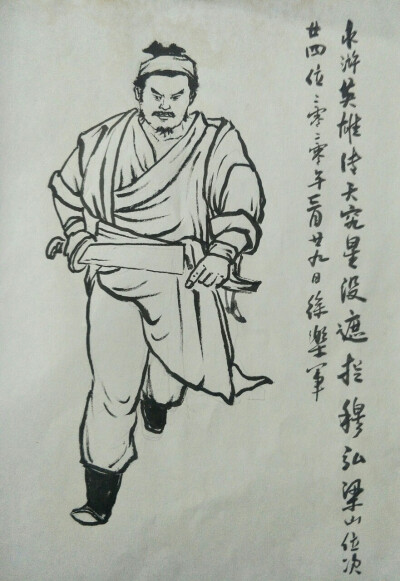 水浒英雄传天究星没遮拦穆弘梁山位次
廿四位二零二零年三月廿九日徐樂军